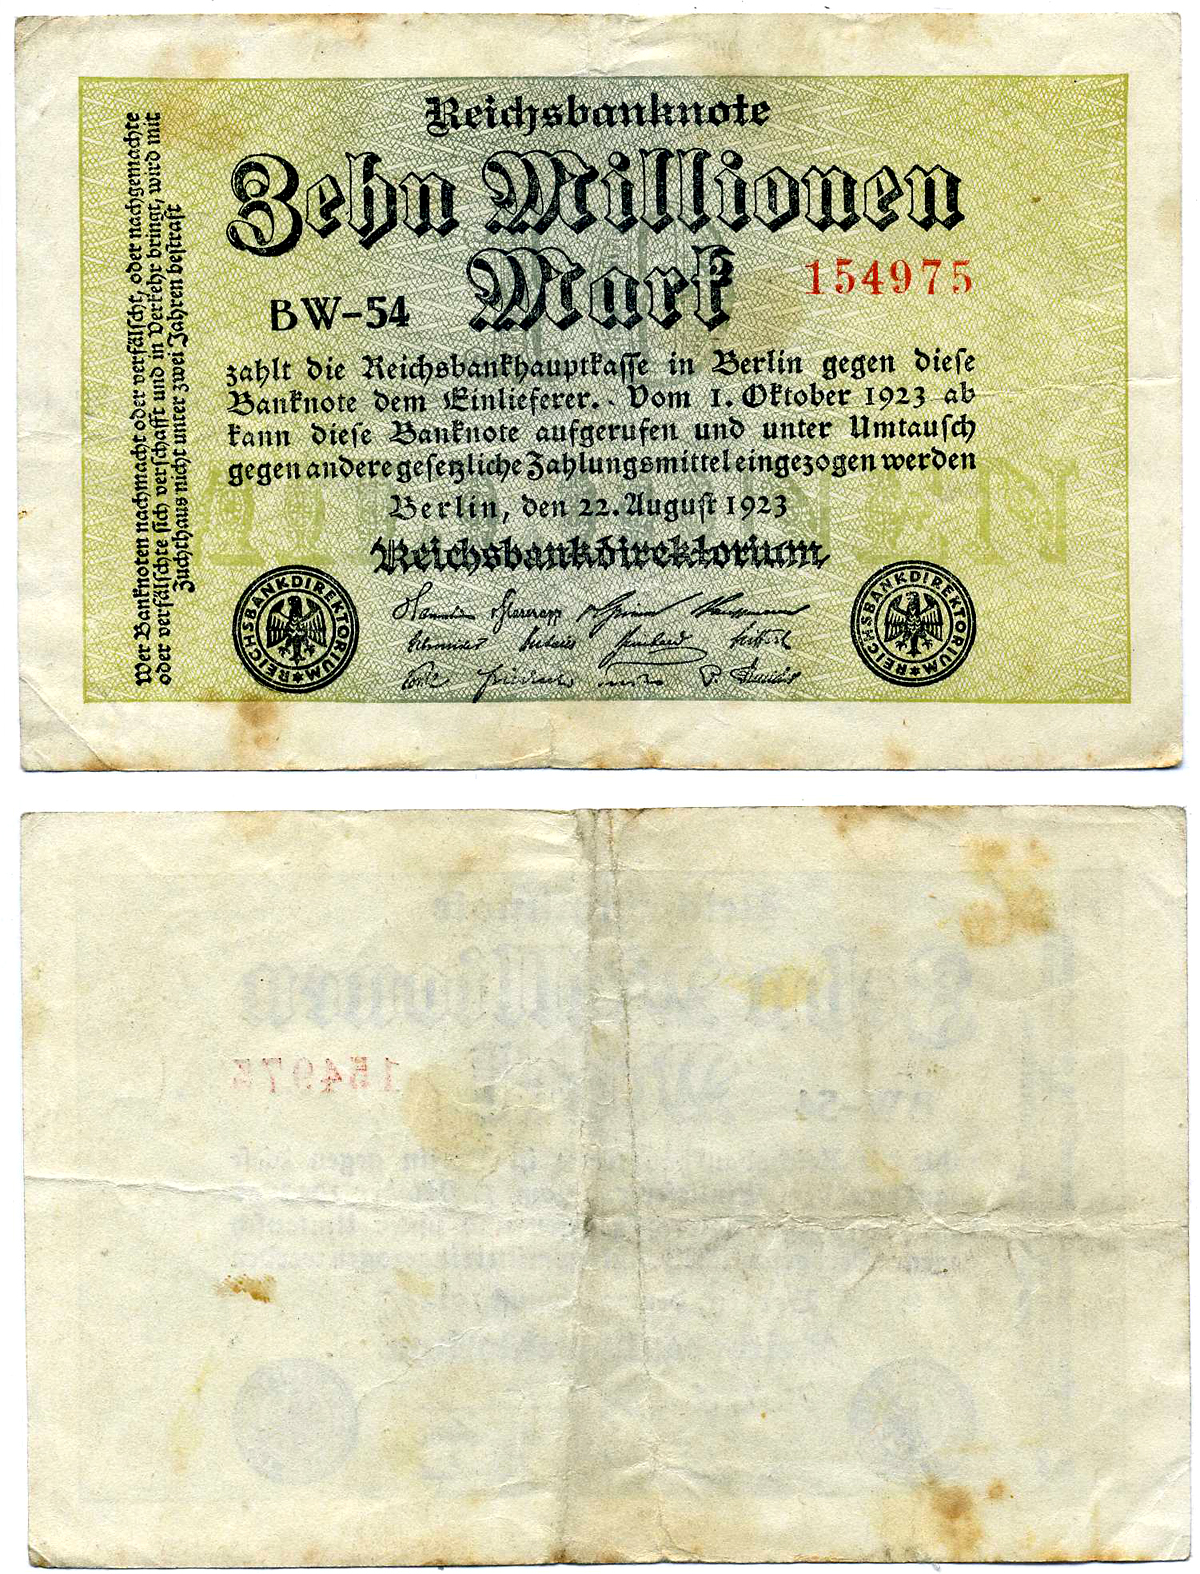 Reichsbanknote
Zehn Millionen
Mark
BW-54
154975
zahlt die Reichsbankhauptkasse in Berlin gegen diese
Banknote dem Einlieferer. Vom 1. Oktober 1923 ab
kann diese Banknote aufgerufen und unter Umtausch
gegen andere gesetzliche Zahlungsmittel eingezogen werden
Berlin, den 22. August 1923
Reichsbankdirektorium
REICHSBANKDIREKTORIUM
REICHSBANKDIREKTORIUM
Wer Banknoten nachmacht oder verfälscht, oder nachgemachte
oder verfälschte sich verschafft und in Verkehr bringt, wird mit
Zuchthaus nicht unter zwei Jahren bestraft
154975